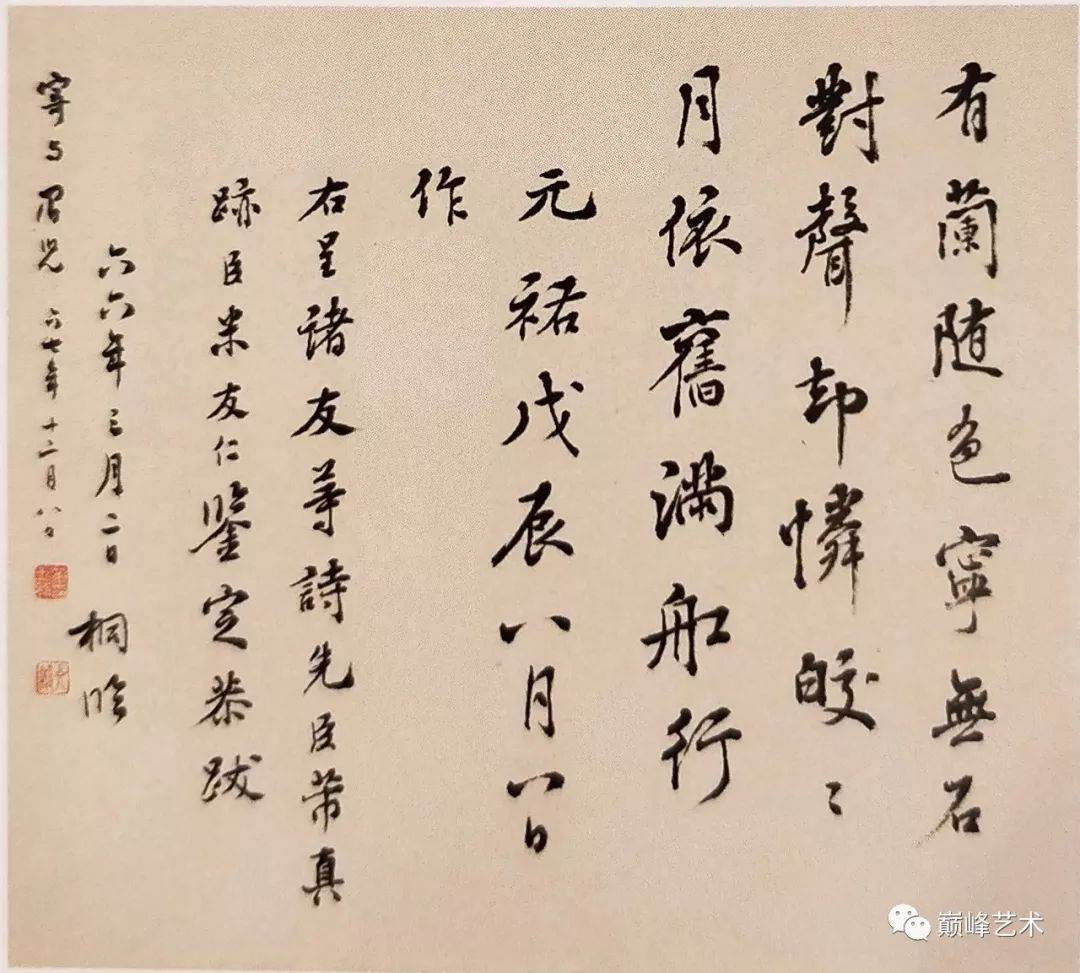 有蘭随色寧無石
對聲却憐皎〻
月依舊滿船行
元祐戊辰八月八日
作
右呈諸友等詩先臣芾真
跡臣米友仁鑒定恭跋
六六年三月二日 桐臨
寄与眉兄 六七年十二月八日
巅峰艺术